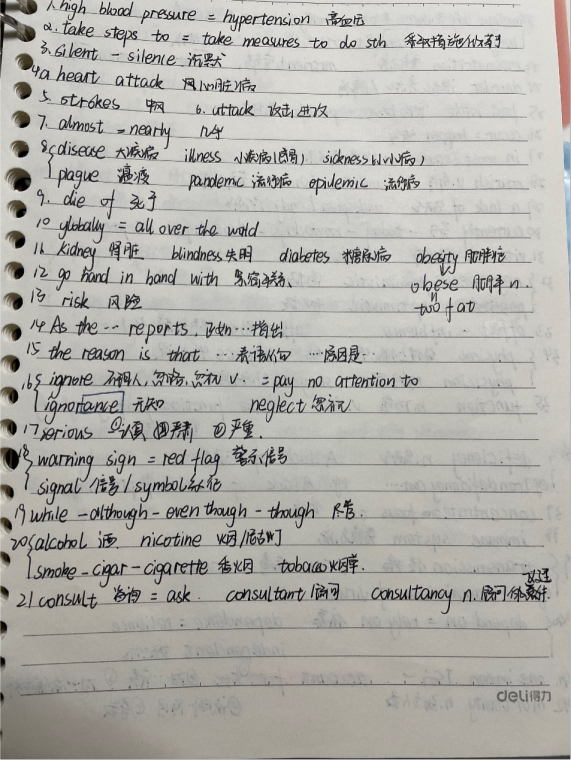 1. high blood pressure = hypertension 高血压
2. take steps to = take measures to do sth 采取措施做某事
3. silent - silence 沉默
4 a heart attack 心脏病
5. strokes 中风 6. attack 攻击 进攻
7. almost = nearly 几乎
8 { disease 大疾病 illness 小疾病 sickness (小病)
plague 瘟疫 pandemic 流行病 epidemic 流行病
9. die of 死于
10 globally = all over the world
11 kidney 肾脏 blindness 失明 diabetes 糖尿病 obesity 肥胖症
12 go hand in hand with obese 肥胖 n.
13 risk 风险 too fat
14 As the ... reports, 正如…指出
15 the reason is that ...表语从句 …原因是…
16 { ignore 不理人, 忽略, 忽视 v. = pay no attention to
ignorance 无知 neglect 忽视
17 serious ①认真 ②严肃 ③严重.
18 { warning sign = red flag 警示信号
signal 信号 / symbol 象征
19 while - although - even though - though 尽管
20 { alcohol 酒 nicotine 尼古丁
smoke - cigar - cigarette 香烟 tobacco 烟草.
21 consult 咨询 = ask. consultant 顾问 consultancy n.
deli得力